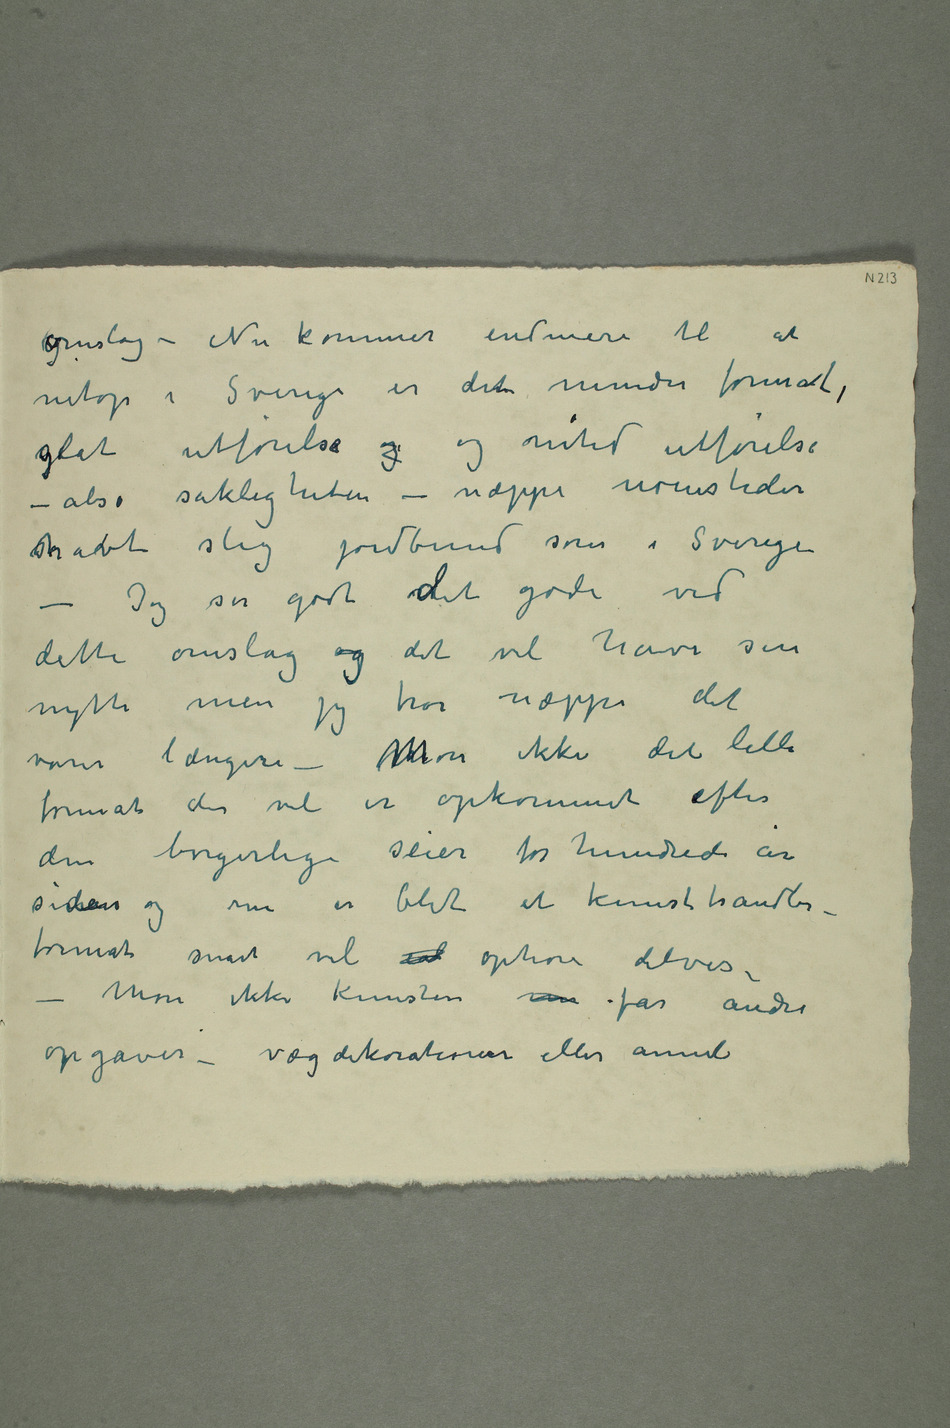 N 213
omslag – Nu kommer endmere til at
netop i Sverige er det mindre format,
glat utførelse og og nitid utførelse
– altså sakligheten – næppe noensteder
hadt slig jordbund som i Sverige
– Jeg ser godt det gode ved
dette omslag og det vil have sin
nytte men jeg tror næppe det
varer længere – Mon ikke det lille
format der vel er opkommet efter
den borgerlige seier for hundrede år
siden og nu er blet et kunsthandler-
format snart vil ophøre delvis –
– Mon ikke kunsten nu får andre
opgaver – vægdekorationer eller annet